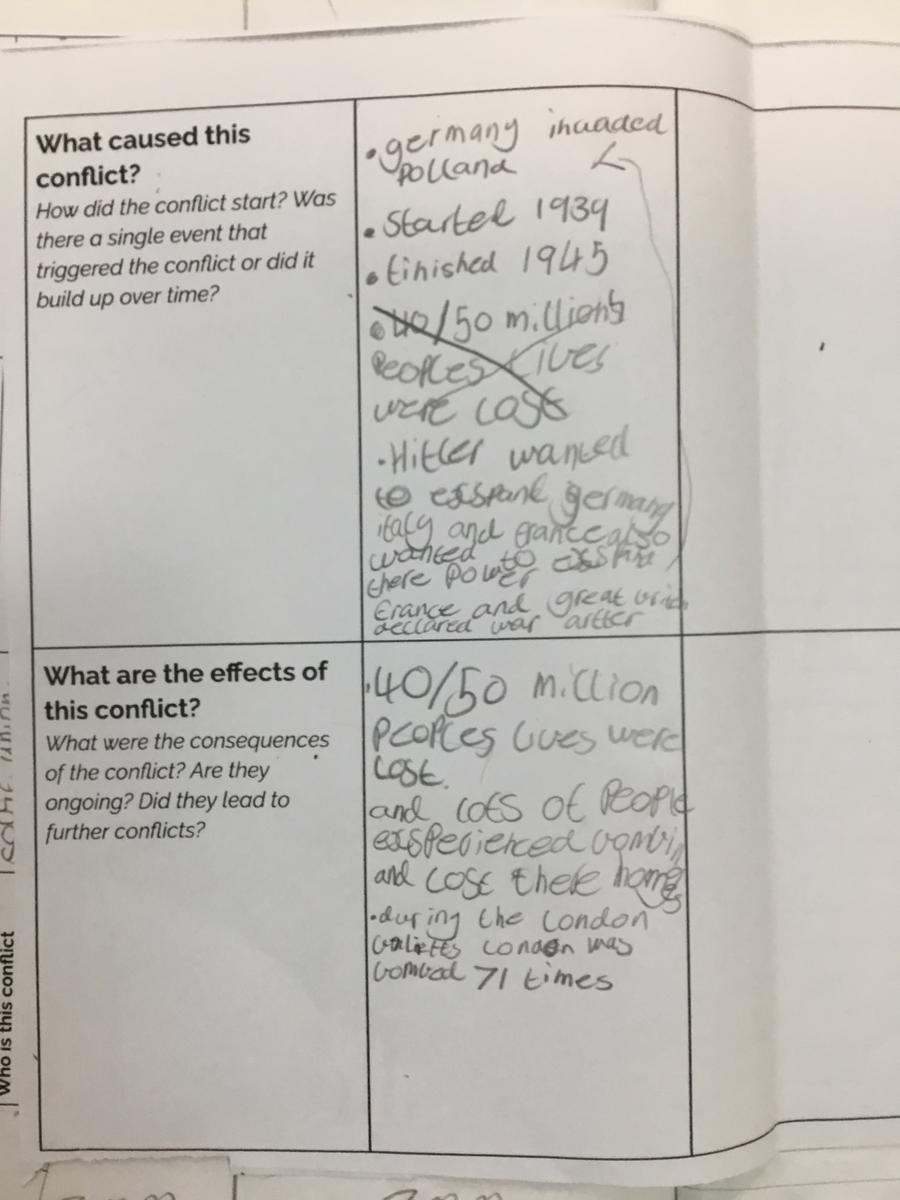 What caused this
conflict?
How did the conflict start? Was
there a single event that
triggered the conflict or did it
build up over time?
• germany invaded
Polland
• Started 1939
• finished 1945
• 40/50 millions
Peoples lives
were lost
• Hitler wanted
to esspand germany
italy and france also
wanted to esspand
there Power
france and great
declared war artter
What are the effects of
this conflict?
What were the consequences
of the conflict? Are they
ongoing? Did they lead to
further conflicts?
• 40/50 million
Peoples lives were
lost.
and lots of People
essperienced
and lost there homes
• during the london
london was
bombed 71 times
Who is this conflict